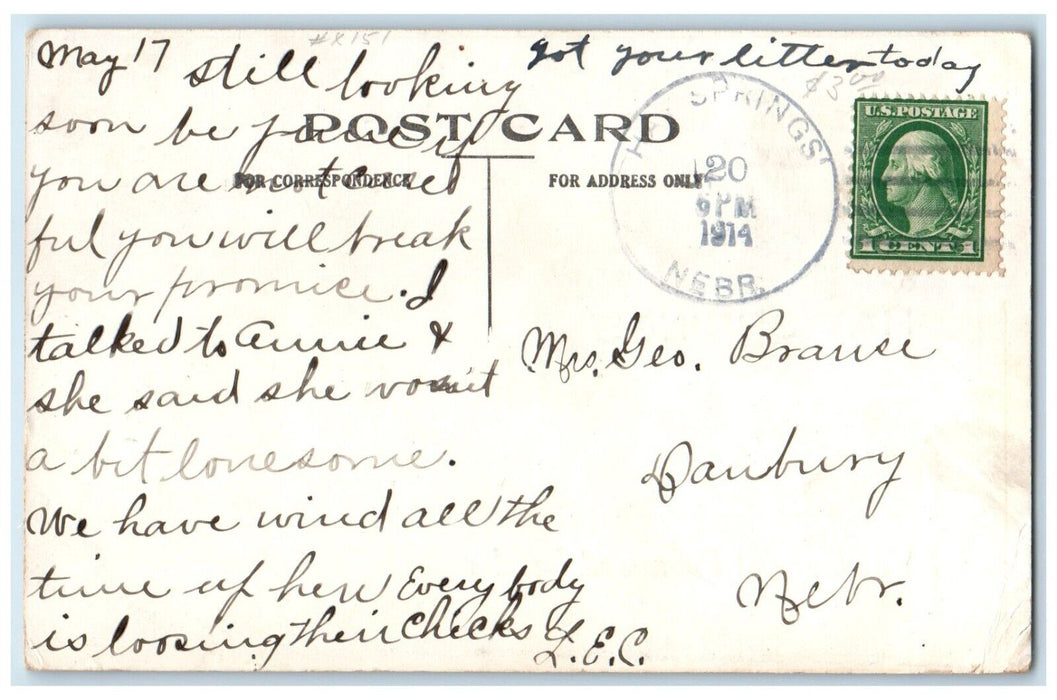 May 17 still looking
soon be
you are not care
ful you will break
your promice. I
talked to Annie &
she said she wasnt
a bit lonesome.
We have wind all the
time up here Every body
is loosing their Checks
L.E.C.
got your litter today
#X151
$3.00
POST CARD
FOR CORRESPONDENCE
FOR ADDRESS ONLY
SPRINGS
20
6 PM
1914
NEBR.
U.S. POSTAGE
1 CENT 1
Mrs. Geo. Brause
Danbury
Nebr.